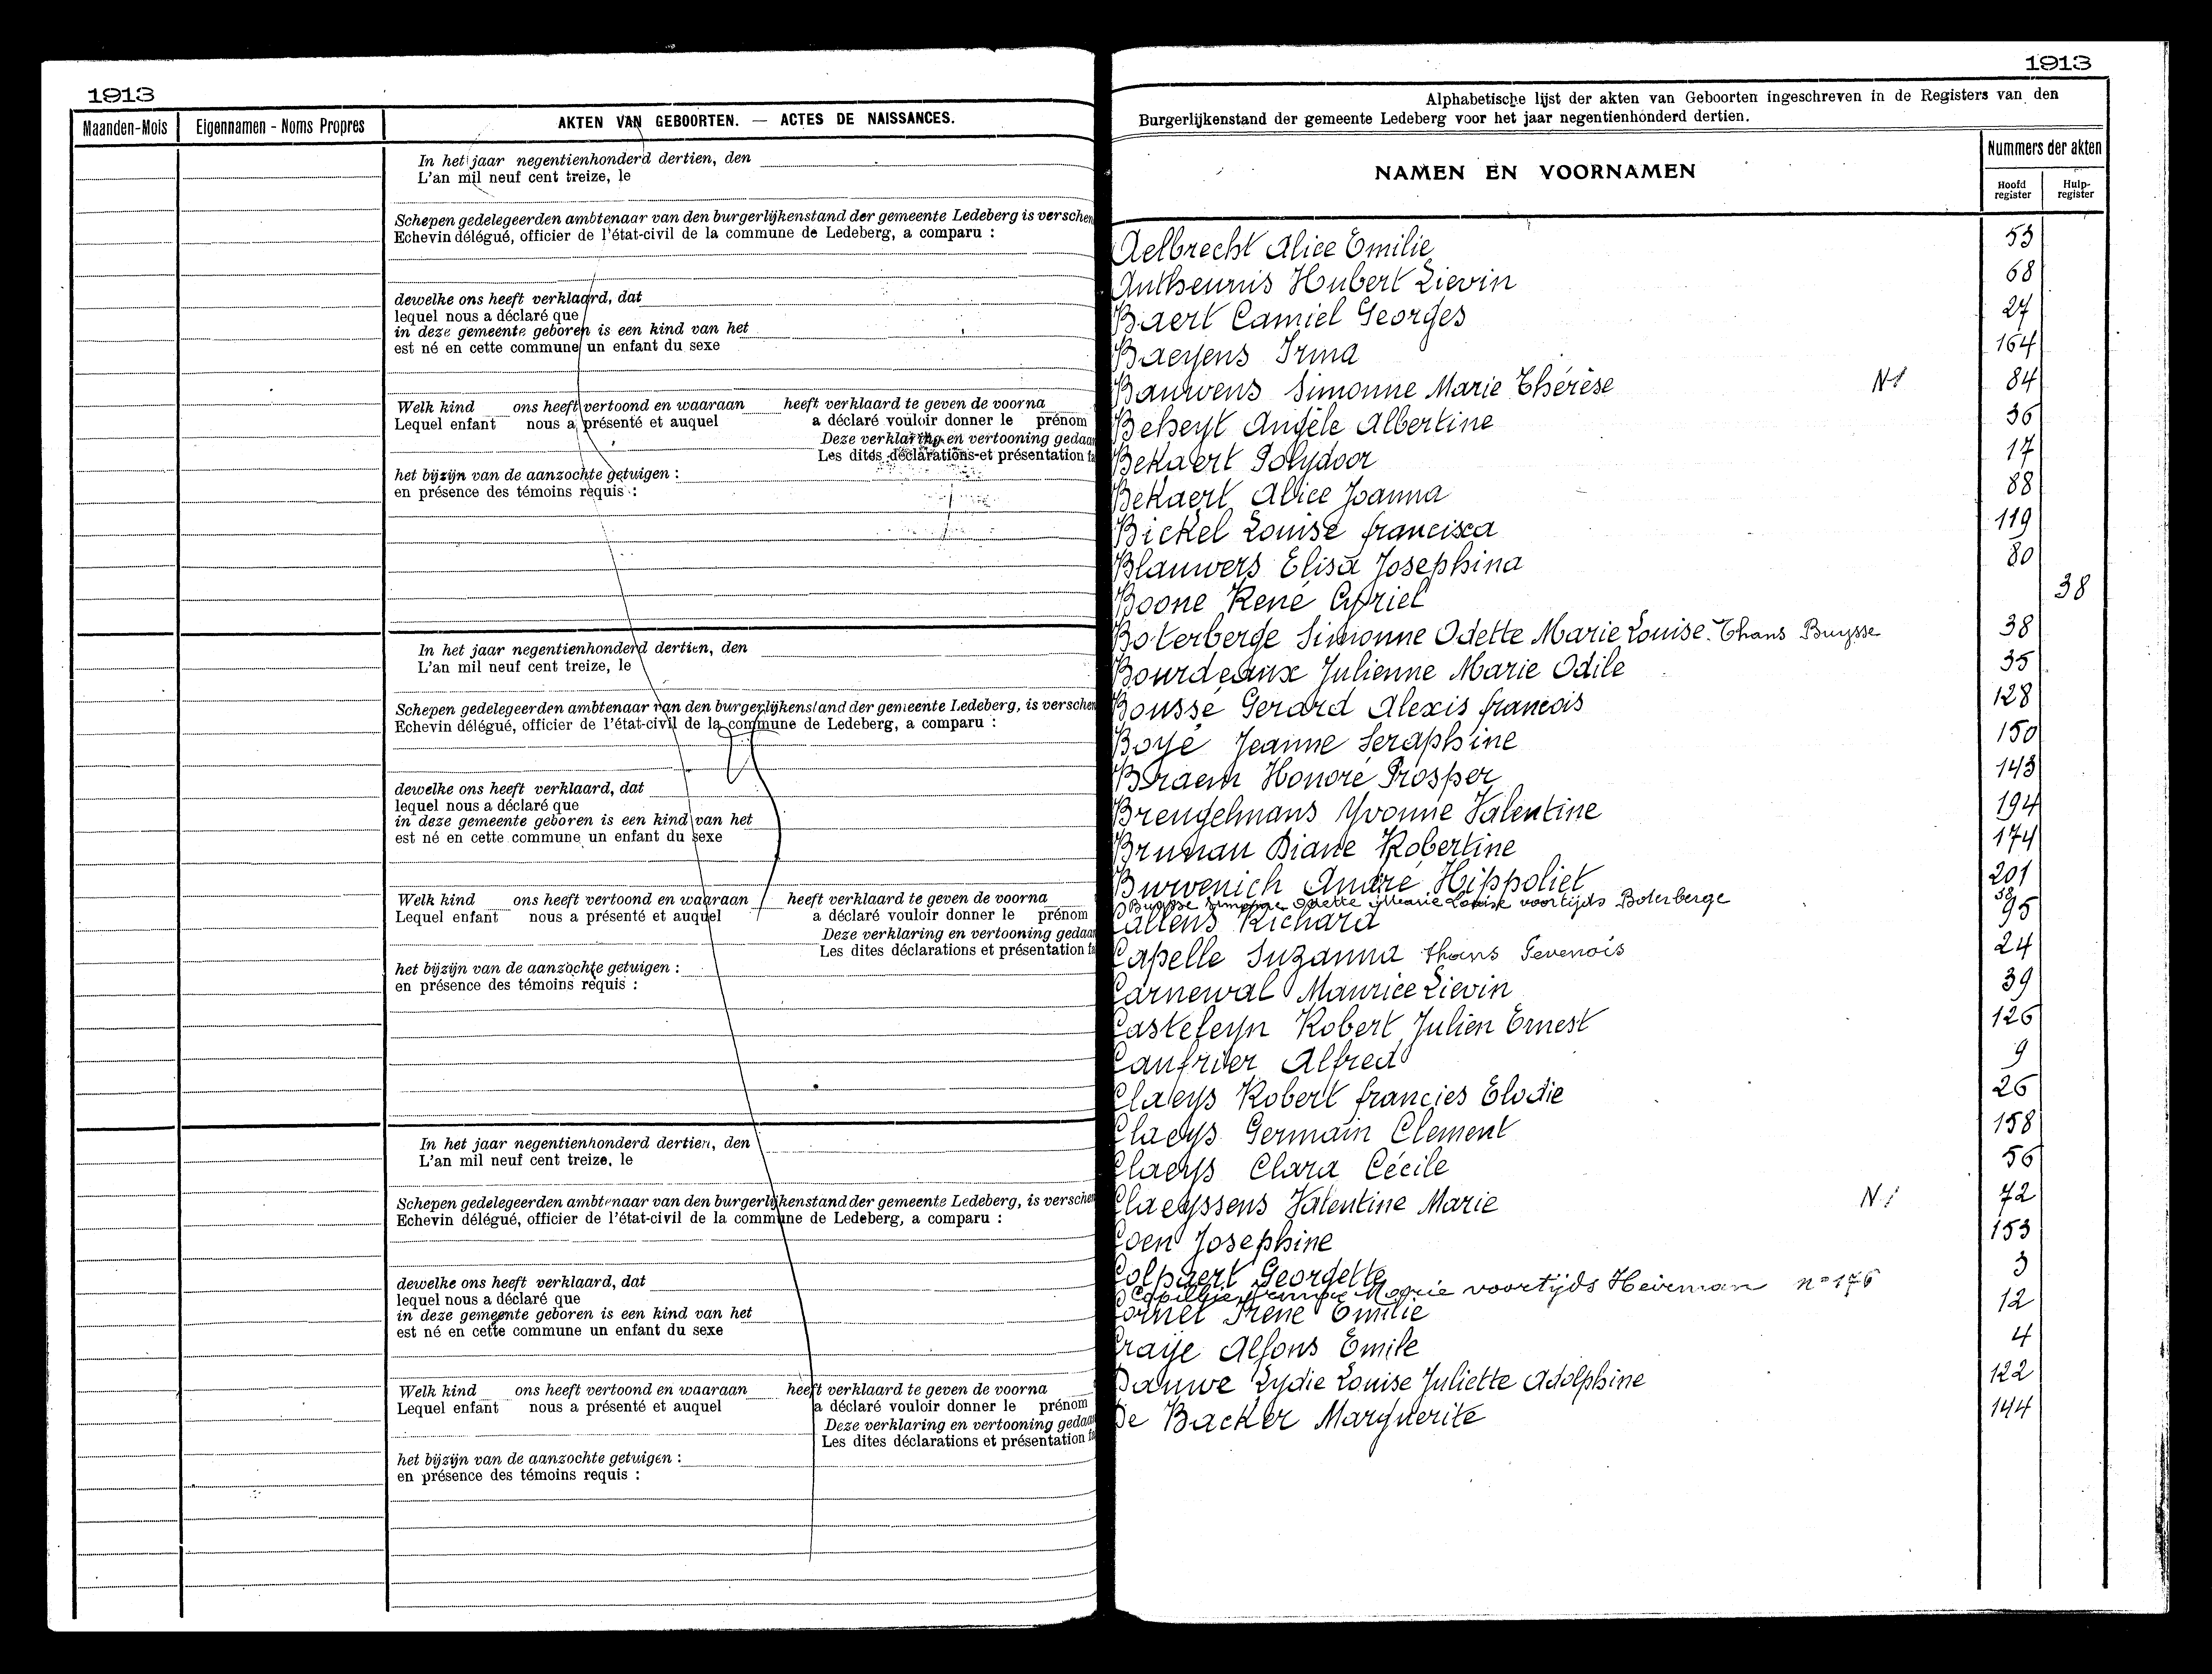 1913
Maanden-Mois Eigennamen - Noms Propres AKTEN VAN GEBOORTEN. — ACTES DE NAISSANCES.
In het jaar negentienhonderd dertien, den
L'an mil neuf cent treize, le
Schepen gedelegeerden ambtenaar van den burgerlijkenstand der gemeente Ledeberg is verschen
Echevin délégué, officier de l'état-civil de la commune de Ledeberg, a comparu :
dewelke ons heeft verklaard, dat
lequel nous a déclaré que
in deze gemeente geboren is een kind van het
est né en cette commune un enfant du sexe
Welk kind ons heeft vertoond en waaraan heeft verklaard te geven de voorna
Lequel enfant nous a présenté et auquel a déclaré vouloir donner le prénom
Deze verklaring en vertooning gedaan
Les dites déclarations et présentation fa
het bijzijn van de aanzochte getuigen :
en présence des témoins requis :
In het jaar negentienhonderd dertien, den
L'an mil neuf cent treize, le
Schepen gedelegeerden ambtenaar van den burgerlijkenstand der gemeente Ledeberg, is verschen
Echevin délégué, officier de l'état-civil de la commune de Ledeberg, a comparu :
dewelke ons heeft verklaard, dat
lequel nous a déclaré que
in deze gemeente geboren is een kind van het
est né en cette commune un enfant du sexe
Welk kind ons heeft vertoond en waaraan heeft verklaard te geven de voorna
Lequel enfant nous a présenté et auquel a déclaré vouloir donner le prénom
Deze verklaring en vertooning gedaan
Les dites déclarations et présentation fa
het bijzijn van de aanzochte getuigen :
en présence des témoins requis :
In het jaar negentienhonderd dertien, den
L'an mil neuf cent treize, le
Schepen gedelegeerden ambtenaar van den burgerlijkenstand der gemeente Ledeberg, is verschen
Echevin délégué, officier de l'état-civil de la commune de Ledeberg, a comparu :
dewelke ons heeft verklaard, dat
lequel nous a déclaré que
in deze gemeente geboren is een kind van het
est né en cette commune un enfant du sexe
Welk kind ons heeft vertoond en waaraan heeft verklaard te geven de voorna
Lequel enfant nous a présenté et auquel a déclaré vouloir donner le prénom
Deze verklaring en vertooning gedaan
Les dites déclarations et présentation fa
het bijzijn van de aanzochte getuigen :
en présence des témoins requis :
1913
Alphabetische lijst der akten van Geboorten ingeschreven in de Registers van den
Burgerlijkenstand der gemeente Ledeberg voor het jaar negentienhonderd dertien.
NAMEN EN VOORNAMEN
Nummers der akten
Hoofd register Hulp-register
Aelbrecht Alice Emilie 53
Antheunis Hubert Lievin 68
Baert Camiel Georges 27
Baeyens Irma 164
Bauwens Simonne Marie Thérèse N1 84
Beheyt Angèle Albertine 36
Bekaert Polydoor 17
Bekaert Alice Joanna 88
Bickel Louise francisca 119
Blauwers Elisa Josephina 80
Boone René Cyriel 38
Boterberge Simonne Odette Marie Louise. Thans Buysse 38
Bourdeaux Julienne Marie Odile 35
Boussé Gerard Alexis francois 128
Boyé Jeanne Seraphine 150
Braem Honoré Prosper 143
Brengelmans Yvonne Valentine 194
Brunau Diane Robertine 174
Burvenich André Hippoliet 201
Buysse Simonne Odette Marie Louise voortijds Boterberge 38
Callens Richard 95
Capelle Suzanna thans Gevenois 24
Carnewal Maurice Lievin 39
Casteleyn Robert Julien Ernest 126
Caufrier Alfred 9
Claeys Robert francies Elodie 26
Claeys Germain Clement 158
Claeys Clara Cécile 56
Claeyssens Valentine Marie N1 72
Coen Josephine 153
Colpaert Georgette 3
Marie voortijds Heirman n= 176
Cornet Irene Emilie 12
Craye Alfons Emile 4
Dauwe Lydie Louise Juliette Adolphine 122
De Backer Marguerite 144